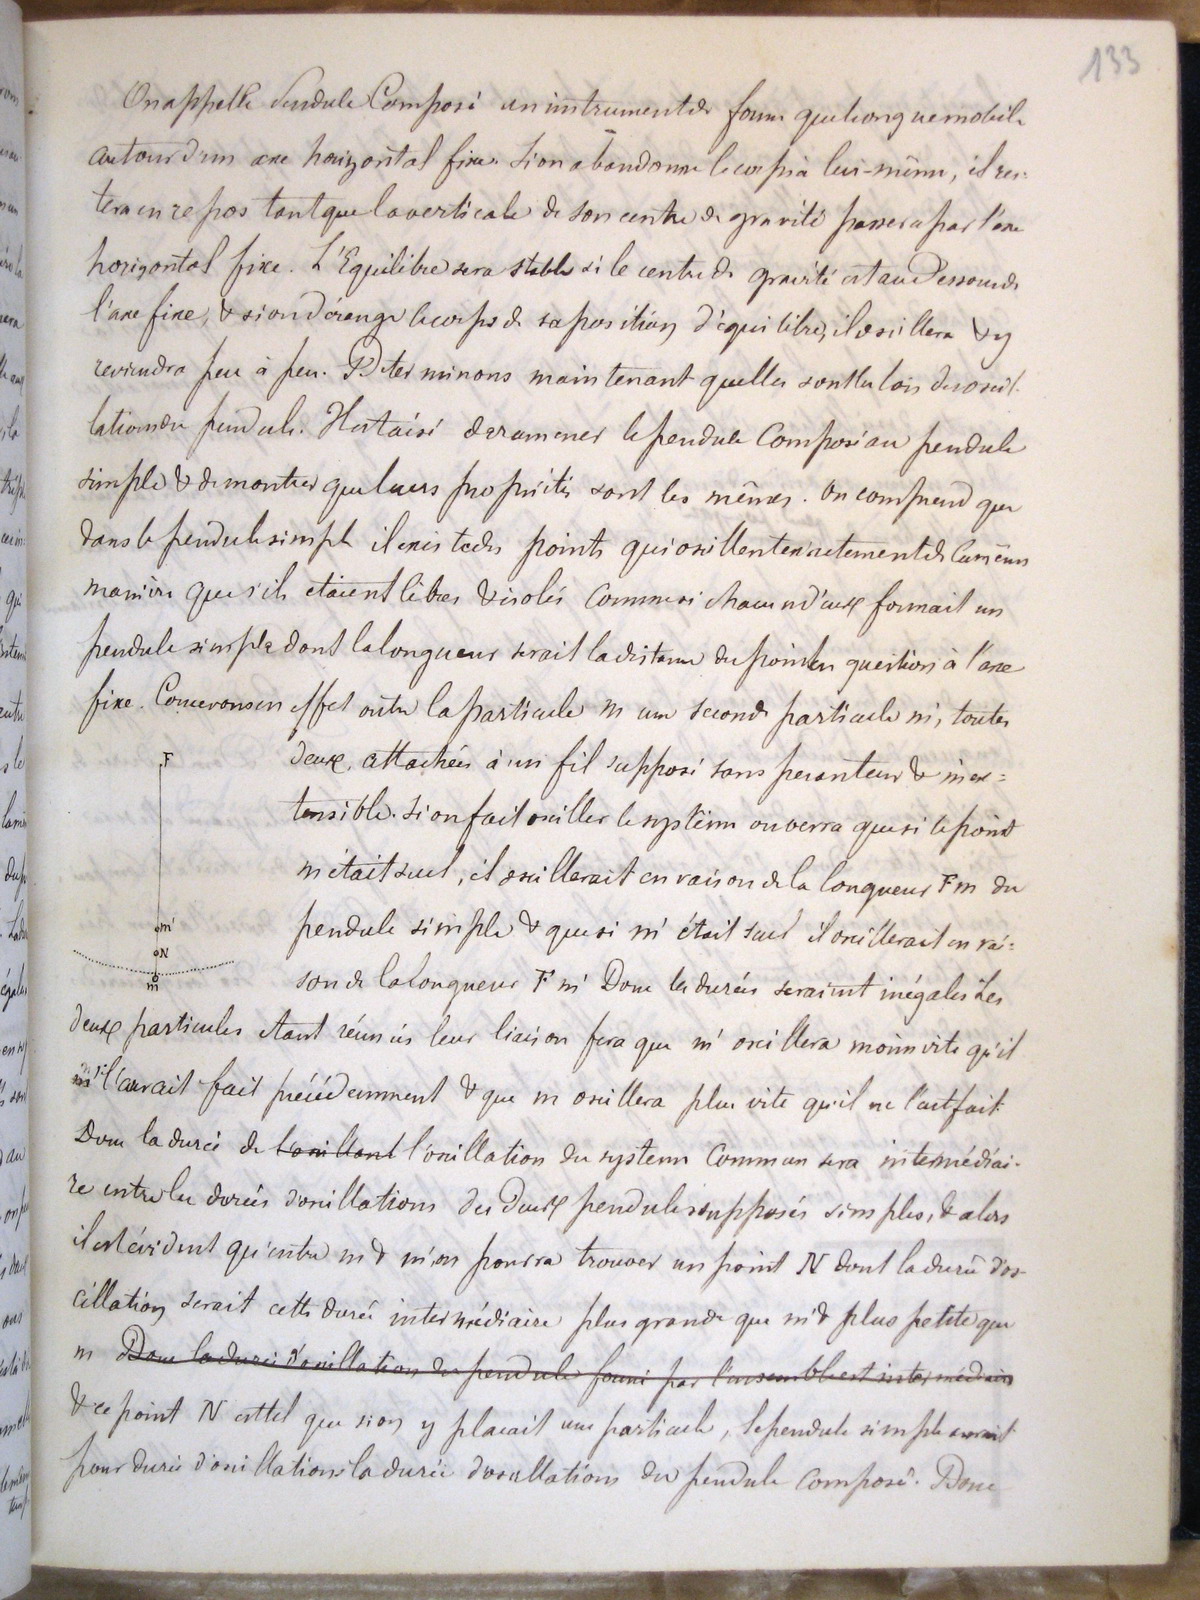 133
On appelle Pendule Composé un instrument de forme quelconque mobile
autour d'un axe horizontal fixe. Si on abandonne le corps à lui-même, il res-
tera en repos tant que la verticale de son centre de gravité passera par l'axe
horizontal fixe. L'Equilibre sera stable si le centre de gravité est au dessous de
l'axe fixe, & si on dérange le corps de sa position d'équilibre, il oscillera & y
reviendra peu à peu. Déterminons maintenant quelles sont les lois des oscil-
lations du pendule. Il est aisé de ramener le pendule Composé au pendule
simple & démontrer que leurs propriétés sont les mêmes. On comprend que
dans le pendule simple il existe des points qui oscillent exactement de la même
manière que s'ils étaient libres & isolés Comme si chacun d'eux formait un
pendule simple dont la longueur serait la distance du point en question à l'axe
fixe. Concevons en effet outre la particule m une seconde particule m', toutes
deux, attachées à un fil supposé sans pesanteur & inex=
tensible. Si on fait osciller le système on verra que si le point
m était seul, il oscillerait en raison de la longueur Fm du
pendule simple & que si m' était seul il oscillerait en rai=
son de la longueur F m' Donc les durées seraient inégales Les
F
m'
N
m
deux particules étant réunies leur liaison fera que m' oscillera moins vite qu'il
ne l'aurait fait précédemment & que m oscillera plus vite qu'il ne l'eut fait.
Donc la durée de l'oscillant l'oscillation du système Commun sera intermédiai-
re entre les durées d'oscillations des deux pendules supposés simples, & alors
il est évident qu'entre m & m' on pourra trouver un point N dont la durée d'os-
cillation serait cette durée intermédiaire plus grande que m' & plus petite que
m Donc la durée d'oscillation du pendule formé par l'ensemble est intermédiaire
& ce point N est tel que si on y plaçait une particule, le pendule simple aurait
pour durée d'oscillations la durée d'oscillations du pendule composé. Donc